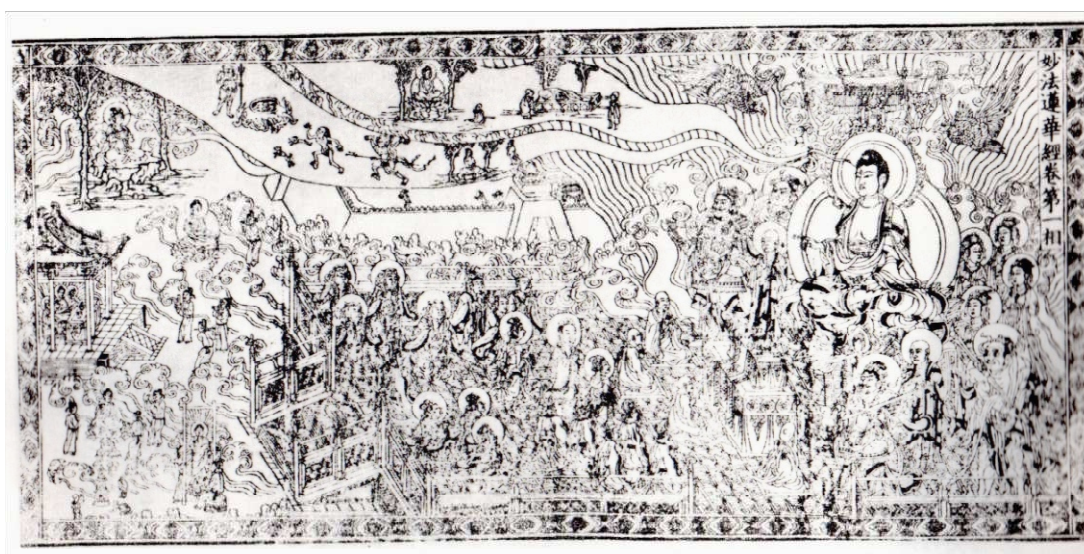 妙法蓮華經卷第一相